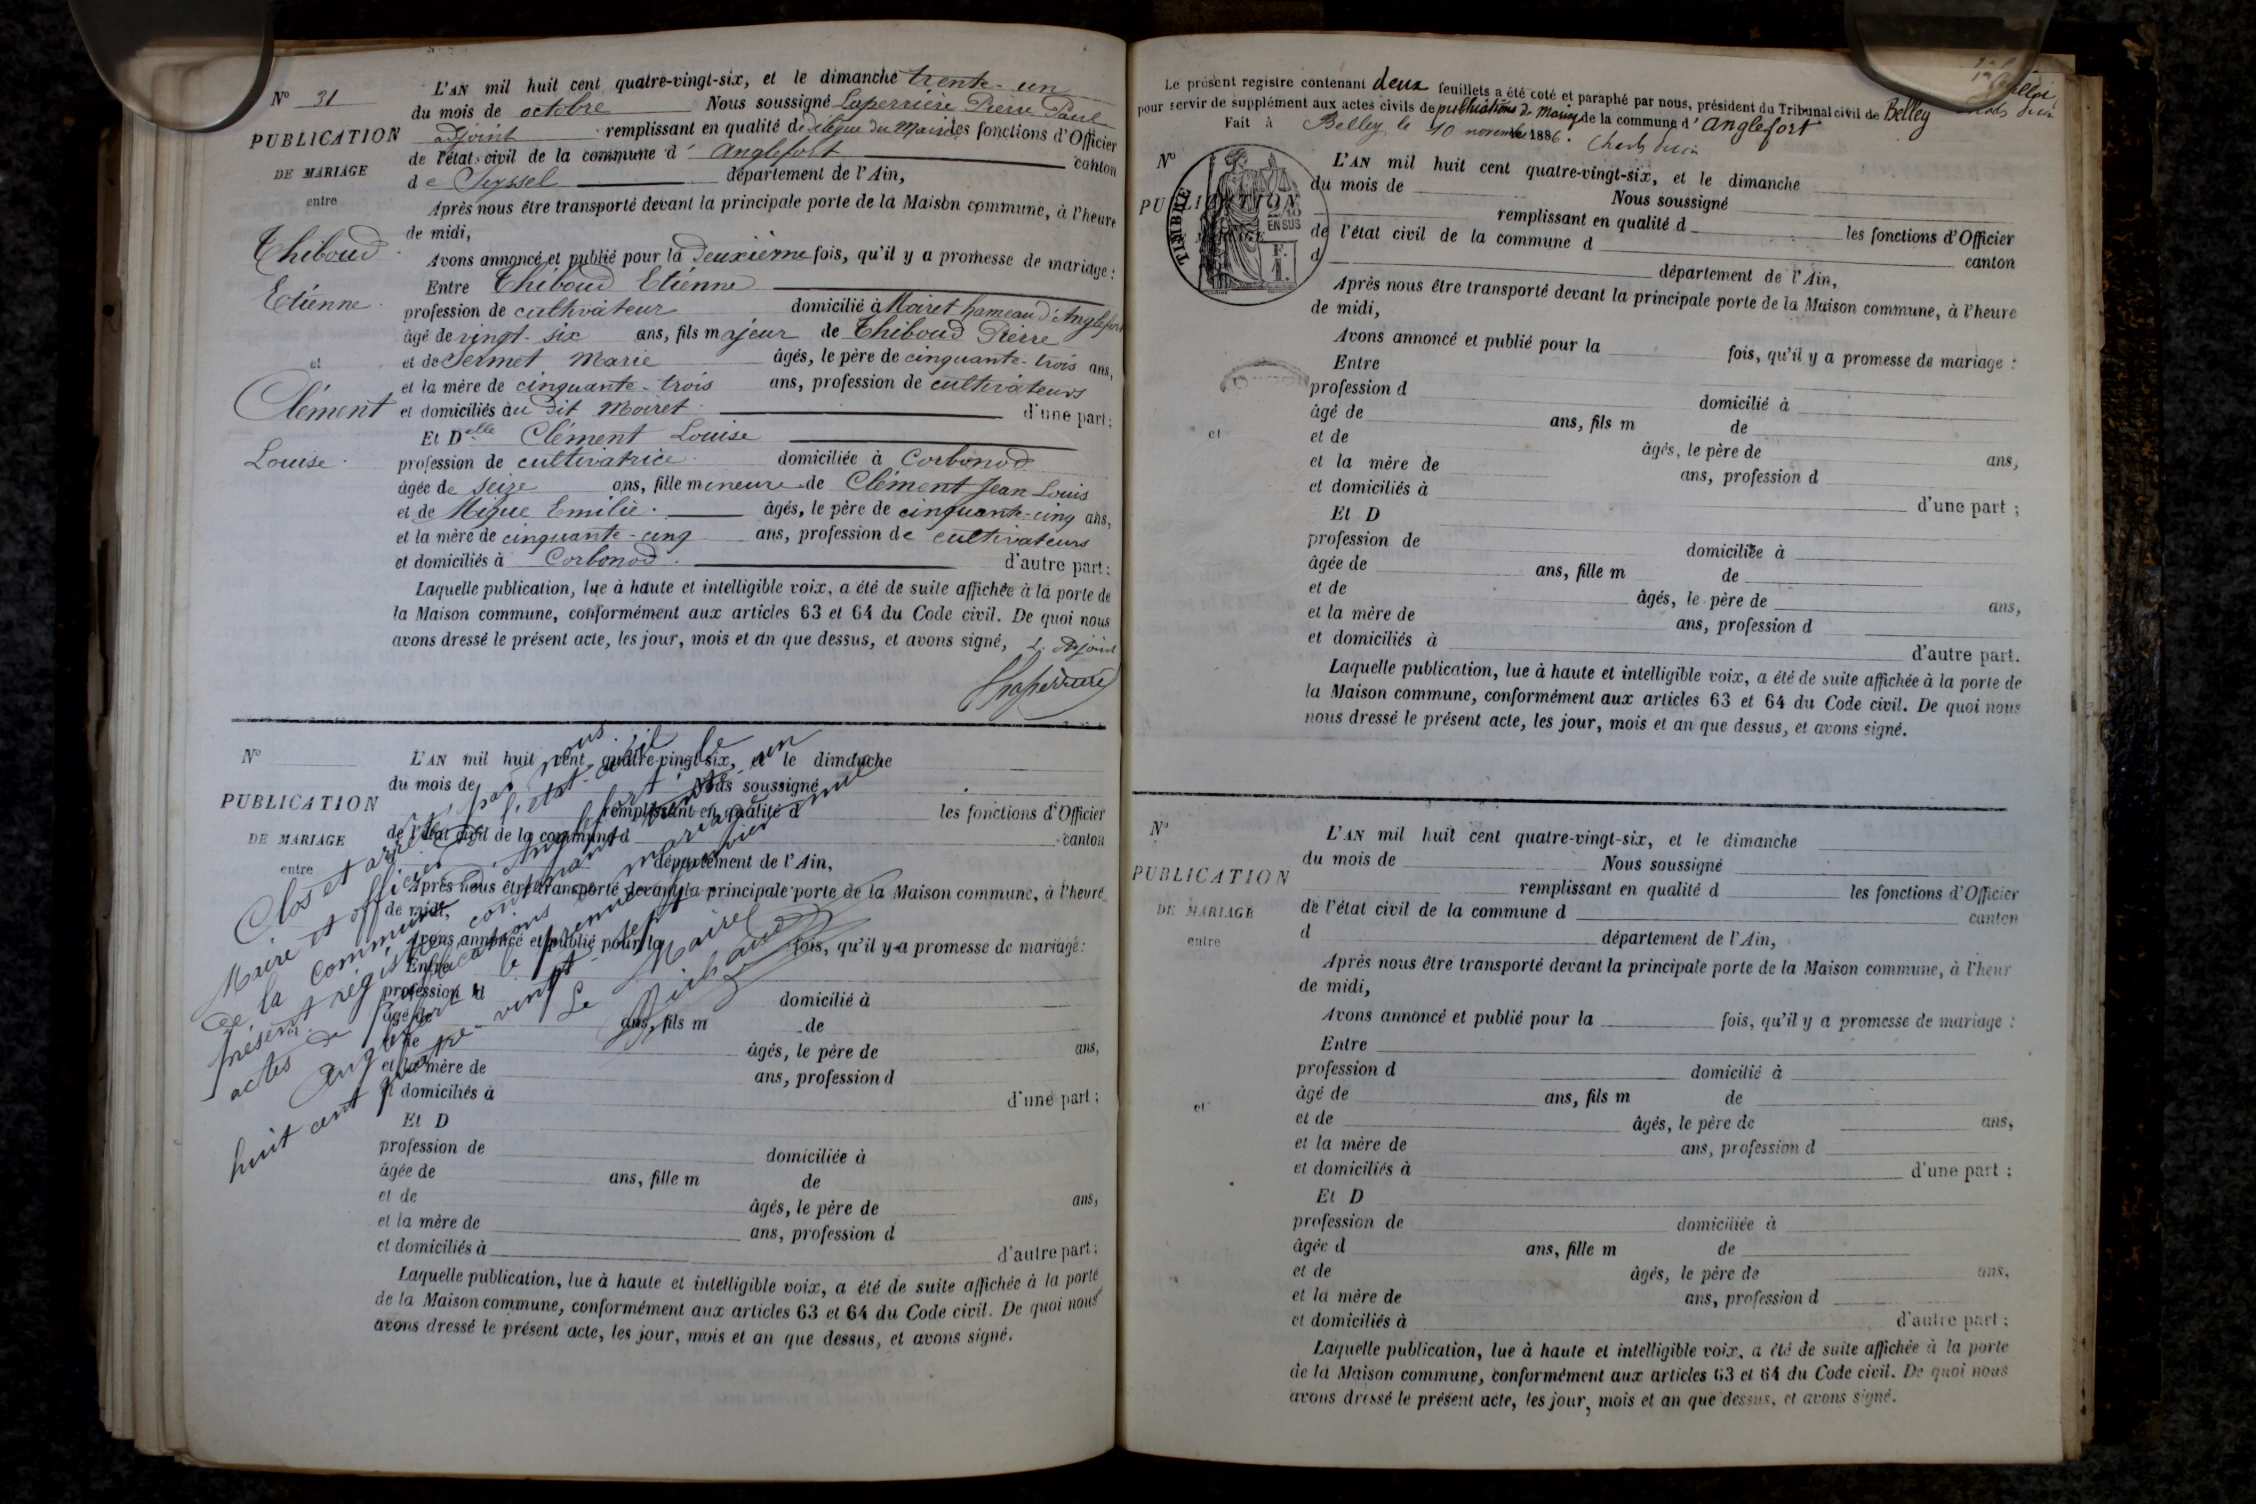 N° 31
PUBLICATION
DE MARIAGE
entre
Thiboud
Etienne
et
Clément
Louise
L'AN mil huit cent quatre-vingt-six, et le dimanche trente-un
du mois de octobre Nous soussigné Laperrière Pierre Paul
adjoint remplissant en qualité de délégué du Maire les fonctions d'Officier
de l'état civil de la commune d' Anglefort canton
de Seyssel département de l'Ain,
Après nous être transporté devant la principale porte de la Maison commune, à l'heure
de midi,
Avons annoncé et publié pour la deuxième fois, qu'il y a promesse de mariage :
Entre Thiboud Etienne
profession de cultivateur domicilié à Moiret hameau d'Anglefort
âgé de vingt-six ans, fils majeur de Thiboud Pierre
et de Sermet Marie âgés, le père de cinquante-trois ans,
et la mère de cinquante-trois ans, profession de cultivateurs
et domiciliés au dit Moiret d'une part ;
Et Delle Clément Louise
profession de cultivatrice domiciliée à Corbonod
âgée de seize ans, fille mineure de Clément Jean Louis
et de Migue Emilie âgés, le père de cinquante-cinq ans,
et la mère de cinquante-cinq ans, profession de cultivateurs
et domiciliés à Corbonod d'autre part ;
Laquelle publication, lue à haute et intelligible voix, a été de suite affichée à la porte de
la Maison commune, conformément aux articles 63 et 64 du Code civil. De quoi nous
avons dressé le présent acte, les jour, mois et an que dessus, et avons signé, L'Adjoint
Laperrière
N°
PUBLICATION
DE MARIAGE
entre
L'AN mil huit cent quatre-vingt-six, et le dimanche
du mois de Nous soussigné
remplissant en qualité d les fonctions d'Officier
de l'état civil de la commune d canton
département de l'Ain,
Après nous être transporté devant la principale porte de la Maison commune, à l'heure
de midi,
Avons annoncé et publié pour la fois, qu'il y a promesse de mariage :
Entre
profession d domicilié à
âgé de ans, fils m de
et de âgés, le père de ans,
et la mère de ans, profession d
et domiciliés à d'une part ;
Et D
profession de domiciliée à
âgée de ans, fille m de
et de âgés, le père de ans,
et la mère de ans, profession d
et domiciliés à d'autre part ;
Laquelle publication, lue à haute et intelligible voix, a été de suite affichée à la porte
de la Maison commune, conformément aux articles 63 et 64 du Code civil. De quoi nous
avons dressé le présent acte, les jour, mois et an que dessus, et avons signé.
Clos et arrêté par nous
Maire et officier de l'état-civil de
la commune d'Anglefort le
présent registre contenant trente-un
actes de publications de mariage
Anglefort le premier janvier mil
huit cent quatre-vingt-sept
Le Maire
Le présent registre contenant deux feuillets a été coté et paraphé par nous, président du Tribunal civil de Belley
pour servir de supplément aux actes civils de publications de mariage de la commune d' Anglefort
Fait à Belley, le 10 novembre 1886.
N°
PUBLICATION
MARIAGE
TIMBRE
2/10
EN SUS
et
L'AN mil huit cent quatre-vingt-six, et le dimanche
du mois de Nous soussigné
remplissant en qualité d les fonctions d'Officier
de l'état civil de la commune d canton
d département de l'Ain,
Après nous être transporté devant la principale porte de la Maison commune, à l'heure
de midi,
Avons annoncé et publié pour la fois, qu'il y a promesse de mariage :
Entre
profession d domicilié à
âgé de ans, fils m de
et de âgés, le père de ans,
et la mère de ans, profession d
et domiciliés à d'une part ;
Et D
profession de domiciliée à
âgée de ans, fille m de
et de âgés, le père de ans,
et la mère de ans, profession d
et domiciliés à d'autre part.
Laquelle publication, lue à haute et intelligible voix, a été de suite affichée à la porte de
la Maison commune, conformément aux articles 63 et 64 du Code civil. De quoi nous
nous dressé le présent acte, les jour, mois et an que dessus, et avons signé.
N°
PUBLICATION
DE MARIAGE
entre
et
L'AN mil huit cent quatre-vingt-six, et le dimanche
du mois de Nous soussigné
remplissant en qualité d les fonctions d'Officier
de l'état civil de la commune d canton
d département de l'Ain,
Après nous être transporté devant la principale porte de la Maison commune, à l'heur
de midi,
Avons annoncé et publié pour la fois, qu'il y a promesse de mariage :
Entre
profession d domicilié à
âgé de ans, fils m de
et de âgés, le père de ans,
et la mère de ans, profession d
et domiciliés à d'une part ;
Et D
profession de domiciliée à
âgée d ans, fille m de
et de âgés, le père de ans,
et la mère de ans, profession d
et domiciliés à d'autre part ;
Laquelle publication, lue à haute et intelligible voix, a été de suite affichée à la porte
de la Maison commune, conformément aux articles 63 et 64 du Code civil. De quoi nous
avons dressé le présent acte, les jour, mois et an que dessus, et avons signé.